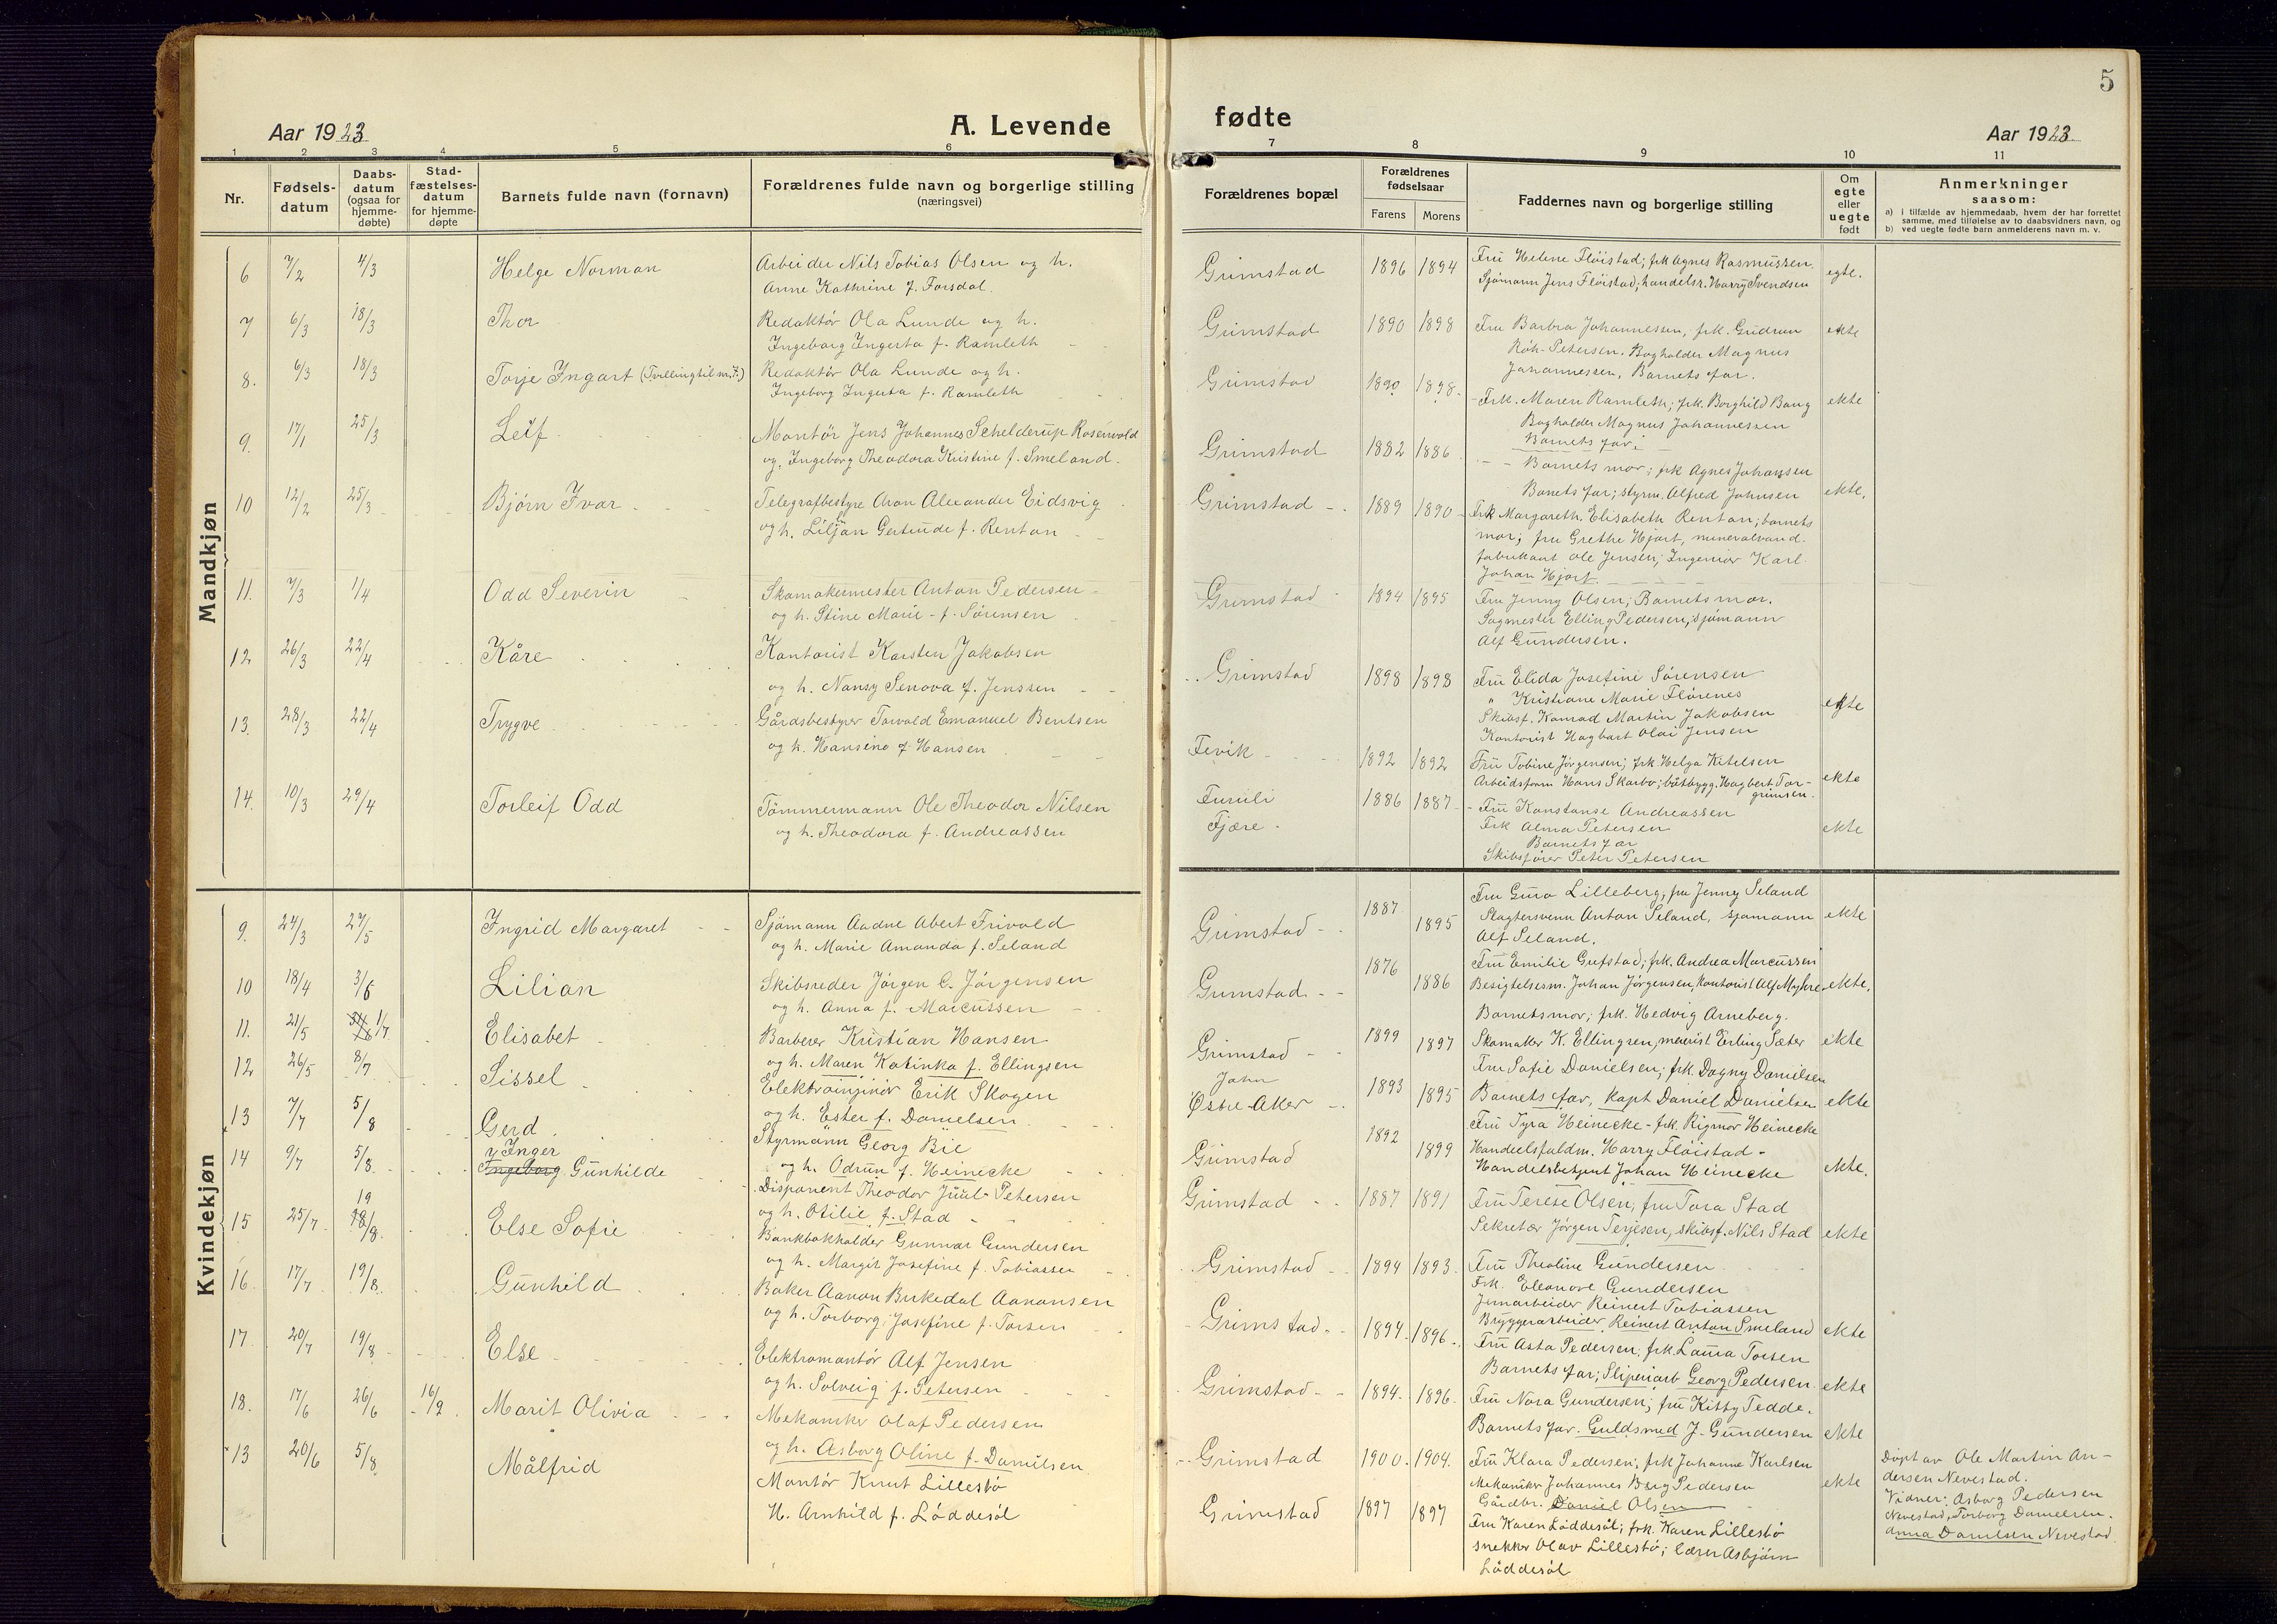 5
Aar 1923
A. Levende
fødte
Aar 1923
1 2 3 4 5 6 7 8 9 10 11
Nr.
Fødsels-
datum
Daabs-
datum
(ogsaa for
hjemme-
døbte)
Stad-
fæstelses-
datum
for hjemme-
døpte
Barnets fulde navn (fornavn)
Forældrenes fulde navn og borgerlige stilling
(næringsvei)
Forældrenes bopæl
Forældrenes
fødselsaar
Farens Morens
Faddernes navn og borgerlige stilling
Om
egte
eller
uegte
født
Anmerkninger
saasom:
a) i tilfælde av hjemmedaab, hvem der har forrettet
samme, med tilføielse av to daabsvidners navn, og
b) ved uegte fødte barn anmelderens navn m. v.
Mandkjøn
6 7/2 4/3 Helge Norman
Arbeider Nils Tobias Olsen og h.
Anne Kathrine f. Forsdal.
Grimstad 1896 1894
Fru Helene Fløistad; frk Agnes Rasmussen.
Sjømann Jens Fløistad; handelsr. Harry Svendsen
egte.
7 6/3 18/3 Thor
Redaktør Ola Lunde og h.
Ingeborg Ingerta f. Ramleth
Grimstad 1890 1898
Fru Barbra Johannessen, frk. Gudrun
Røh-Petersen. Bogholder Magnus
Johannessen, Barnets far.
ekte
8. 6/3 18/3 Torje Ingart (Tvilling til nr. 7.)
Redaktør Ola Lunde og h.
Ingeborg Ingerta f. Ramleth
Grimstad 1890 1898
Frk. Maren Ramleth; frk. Borghild Bang
Bogholder Magnus Johannessen
Barnets far;
ekte
9. 17/1 25/3 Leif
Montør Jens Johannes Schelderup Rosenvold
og, Ingeborg Theodora Kristine f. Smeland.
Grimstad 1882 1886
Barnets mor; frk Agnes Johansen
Barets far; styrm. Alfred Johnsen
ekte.
10 12/2 25/3 Bjørn Ivar
Telegrafbestyre Aron Alexander Eidsvig
og h. Liljan Gertrude f. Renton
Grimstad 1889 1890
Frk Margareth. Elisabeth Renton; barnets
mor; fru Grethe Hjort, mineralvand-
fabrikant Ole Jensen; Ingeniør Karl
Johan Hjort.
11. 7/3 1/4 Odd Severin
Skomakermester Anton Pedersen
og h. Stine Marie f. Sørensen
Grimstad 1894 1895
Fru Jenny Olsen; Barnets mor.
Sagmester Elling Pedersen; sjømann
Alf Gundersen.
12 26/3 22/4 Kåre
Kontorist Karsten Jakobsen
og h. Nansy Senova f. Jenssen
Grimstad 1898 1898
Fru Elida Josefine Sørensen
" Kristiane Marie Florenes
Skibsf. Konrad Martin Jakobsen
Kontorist Hagbart Olai Jensen
egte
13. 28/3 22/4 Trygve
Gårdsbestyrer Torvald Emanuel Bentsen
og h. Hansine f. Hansen
Fevik 1892 1892
Fru Tobine Jørgensen; frk Helga Kitelsen
Arbeidsform Hans Skarbo; båtbygg. Hagbert Tor-
grimsen.
ekte
14. 10/3 29/4 Torleif Odd
Tømmermann Ole Theodor Nilsen
og h. Theodora f. Andreassen
Furuli
Fjære.
1886 1887
Fru Konstanse Andreassen
Frk Alma Petersen
Barnets far
Skibsfører Peter Petersen
ekte
Kvindekjøn
9. 24/3 27/5 Ingrid Margaret
Sjømann Aadne Abert Frivold
og h. Marie Amanda f. Seland
Grimstad 1887 1895
Fru Guro Lilleberg; fru Jenny Seland
Slagtersvenn Anton Seland, sjømann
Alf Seland.
ekte
10 18/4 3/6 Lilian
Skibsreder Jørgen C. Jørgensen
og h. Anna f. Marcussen
Grimstad 1876 1886
Fru Emilie Gufstad; frk. Andrea Marcussen
Besigtelsesm. Johan Jørgensen, Kontorist Alf Myhre
ekte.
11. 21/5 1/7 Elisabet
Barberer Kristian Hansen
og h. Maren Katinka f. Ellingsen
Grimstad 1899 1897
Barnets mor; frk. Hedvig Arneberg.
Skomaker K. Ellingsen, meierist Erling Sæter
ekte
12 26/5 8/7 Sissel
Elektroinginiør Erik Skogen
og h. Ester f. Danielsen
Østre-Aker 1893 1895
Fru Sofie Danielsen; frk. Dagny Danielsen
Barnets far, Kapt Daniel Danielsen
ekte
13 7/7 5/8 Gerd
Styrmann Georg Bie
og h. Odrun f. Heinecke
Grimstad 1892 1899
Fru Tyra Heinecke - frk. Rigmor Heinecke
Handelsfuldm. Harry Fløistad -
Handelsbetjent Johan Heinecke
ekte.
14 9/7 5/8 Inger
Ingeborg Gunhilde
Disponent Theodor Juul-Petersen
og h. Otilie f. Stad
Grimstad 1887 1891
Fru Terese Olsen, fru Tora Stad
Sekretær Jørgen Terjesen, skibsf. Nils Stad
ekte
15 25/7 19/8 Else Sofie
Bankbokholder Gunnar Gundersen
og h. Margit Josefine f. Tobiassen
Grimstad 1894 1893
Fru Theoline Gundersen
Frk. Eleonore Gundersen
Jernarbeider Reinert Tobiassen
Bryggerarbeider Reinert Anton Smeland
ekte
16 17/7 19/8 Gunhild
Baker Aanon Birkedal Aanonsen
og h. Torborg Josefine f. Torsen
Grimstad 1894 1896
Fru Asta Pedersen; frk. Laura Torsen
Barnets far; Sliperiarb Georg Pedersen
ekte
17. 20/7 19/8 Else
Elektromontør Alf Jensen
og h. Solveig f. Petersen
Grimstad 1894 1896.
Fru Nora Gundersen; fru Kitty Tedde.
Barnets far. Guldsmed J. Gundersen
ekte
18. 17/6 26/6 16/9 Marit Olivia
Mekaniker Olaf Pedersen
og h. Asborg Oline f. Danielsen
Grimstad 1900. 1904.
Fru Klara Pedersen; frk Johanne Karlsen
Mekaniker Johannes Berg Pedersen
Gårdbr. Daniel Olsen
ekte
Døpt av Ole Martin An-
dersen Nevestad.
Vidner: Asborg Pedersen
Nevestad, Torborg Danielsen.
Anna Danielsen Nevestad
13 20/6 5/8 Målfrid
Montør Knut Lillestø
H. Arnhild f. Løddesøl
Grimstad 1897 1897
Fru Karen Løddesøl; frk. Karen Lillestø
snekker Olav Lillestø; lærer Asbjørn
Løddesøl